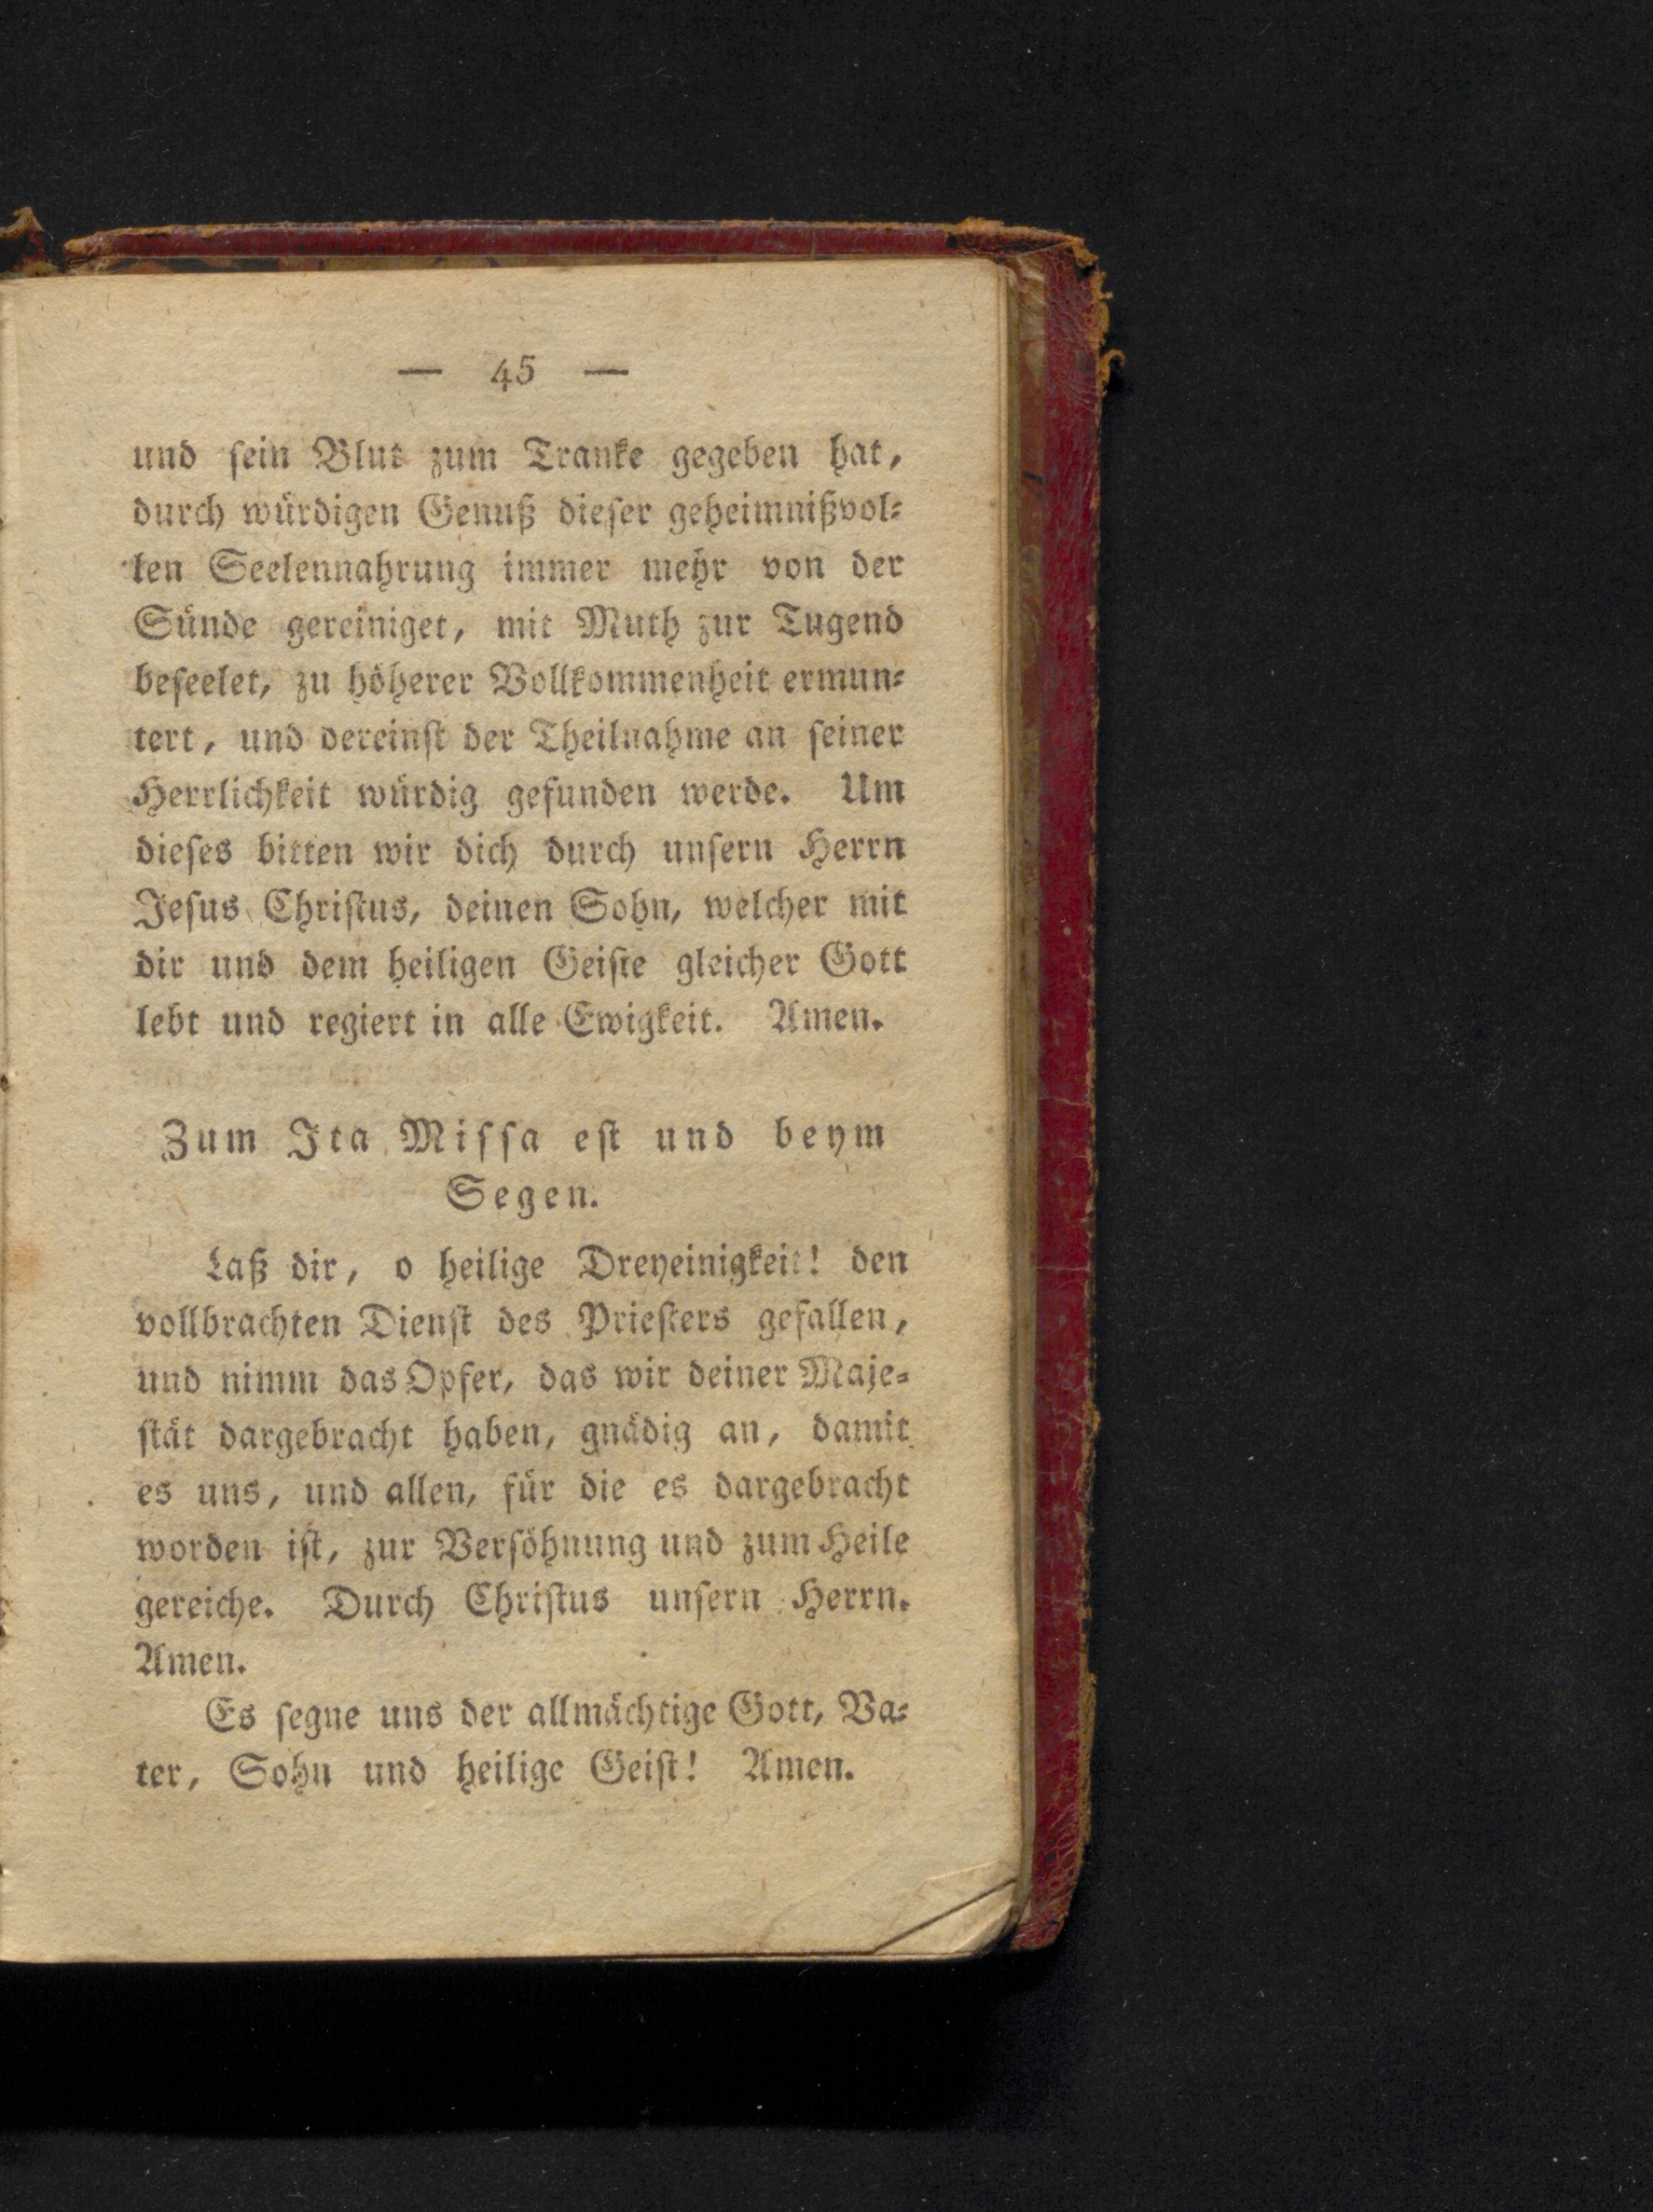 — 45 —
und ſein Blut zum Tranke gegeben hat,
durch würdigen Genuß dieſer geheimnißvol⸗
len Seelennahrung immer mehr von der
Sünde gereiniget, mit Muth zur Tugend
beſeelet, zu höherer Vollkommenheit ermun⸗
tert, und dereinſt der Theilnahme an ſeiner
Herrlichkeit würdig gefunden werde. Um
dieſes bitten wir dich durch unſern Herrn
Jeſus Chriſtus, deinen Sohn, welcher mit
dir und dem heiligen Geiſte gleicher Gott
lebt und regiert in alle Ewigkeit. Amen.
Zum Ita Miſſa eſt und beym
Segen.
Laß dir, o heilige Dreyeinigkeit! den
vollbrachten Dienſt des Prieſters gefallen,
und nimm das Opfer, das wir deiner Maje⸗
ſtät dargebracht haben, gnädig an, damit
es uns, und allen, für die es dargebracht
worden iſt, zur Verſöhnung und zum Heile
gereiche. Durch Chriſtus unſern Herrn.
Amen.
Es ſegne uns der allmächtige Gott, Va⸗
ter, Sohn und heilige Geiſt! Amen.